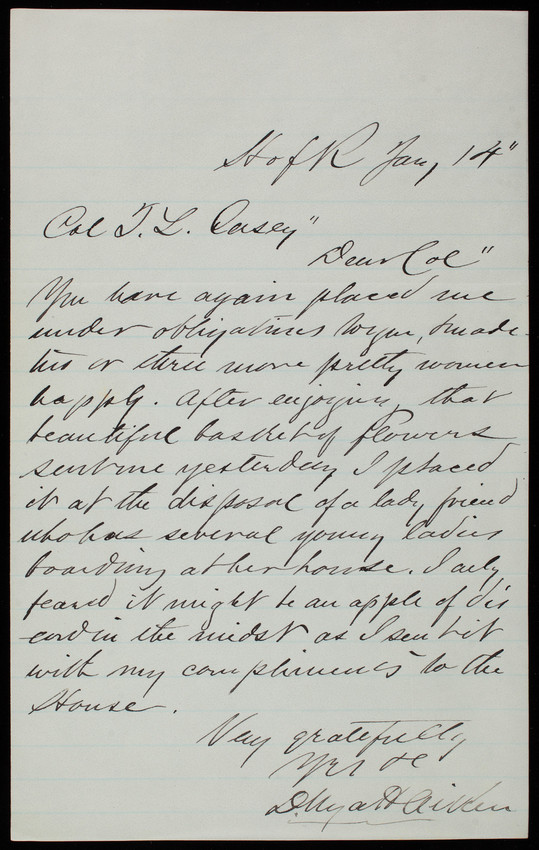 H of R Jan, 14"
Col T. L. Casey"
Dear Col"
You have again placed me
under obligations to you, & made
two or three more pretty women
happy. After enjoying that
beautiful basket of flowers
sent me yesterday I placed
it at the disposal of a lady friend
who has several young ladies
boarding at her house. I only
feared it might be an apple of dis
cord in the midst as I sent it
with my compliments to the
House.
Very gratefully
Yrs &c
D. Wyatt Aiken